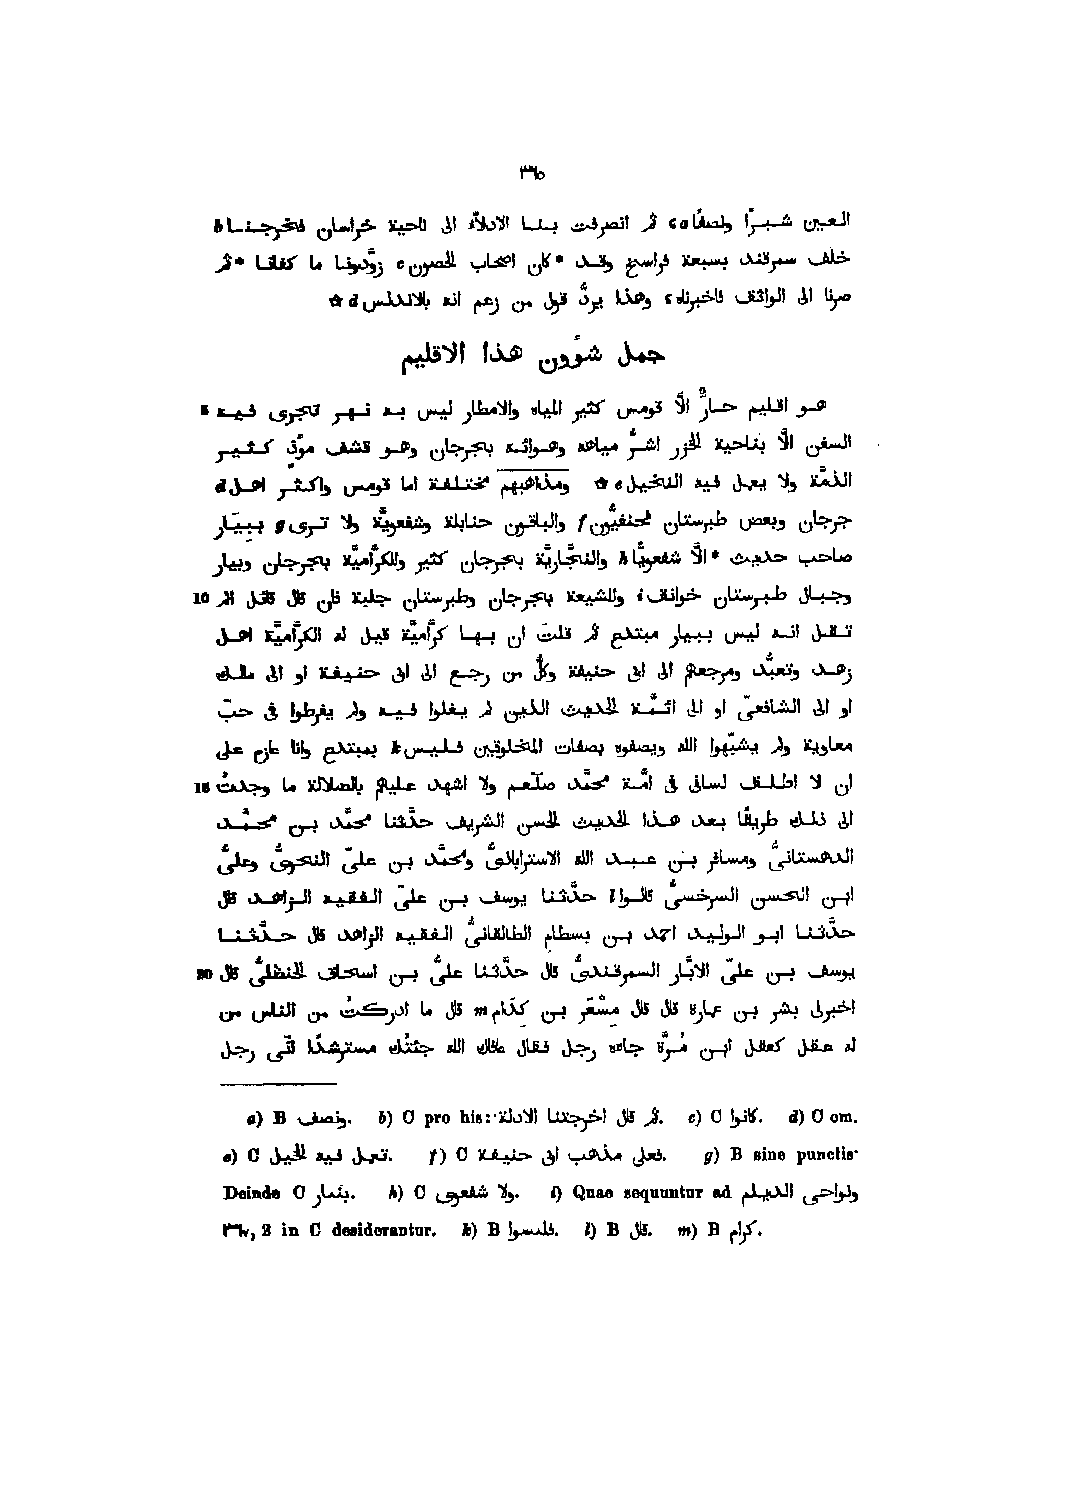 ٣٦٥
العين شبرًا ونصفًا a ثم انصرفت بنا الادلّاء الى ناحية خراسان فخرجنا b
خلف سمرقند بسبعة فراسخ وقد *كان اصحاب الحصون c زوّدونا ما كفانا *ثم
صرنا الى الواثق فاخبرناه c وهذا يردّ قول من زعم انه بالاندلس d ☆
جمل شؤون هذا الاقليم
هو اقليم حارّ الّا قومس كثير المياه والامطار ليس به نهر تجرى فيه 5
السفن الّا بناحية الخزر اشرّ مياهه وهوائه بجرجان وهو قشف موّق كثير
الذمّة ولا يعمل فيه النخيل e ☆ ومذاهبهم مختلفة اما قومس واكثر اهل d
جرجان وبعض طبرستان فحنفيّون f والباقون حنابلة وشفعويّة ولا ترى g ببيَار
صاحب حديث *الّا شفعويًّا h والنجّاريّة بجرجان كثير وللكرّاميّة بجرجان وبيار
وجبال طبرستان خوانق i وللشيعة بجرجان وطبرستان جلبة فان قال قائل الم 10
تقل انه ليس ببيار مبتدع ثم قلتَ ان بها كرّاميّة قيل له الكرّاميّة اهل
زهد وتعبّد ومرجعهم الى ابى حنيفة وكلّ من رجع الى ابى حنيفة او الى مالك
او الى الشافعىّ او الى ائمّة الحديث الذين لم يغلوا فيه ولم يفرطوا فى حبّ
معاوية ولم يشبّهوا الله ويصفوه بصفات المخلوقين فليس k بمبتدع وانا عازم على
ان لا اطلق لسانى فى امّة محمّد صلّعم ولا اشهد عليهم بالضلالة ما وجدتُ 15
الى ذلك طريقًا بعد هذا الحديث الحسن الشريف حدّثنا محمّد بن محمّد
الدهستانىّ ومسافر بن عبد الله الاستراباذىّ ومحمّد بن علىّ النحوىّ وعلىّ
ابن الحسن السرخسىّ قالوا l حدّثنا يوسف بن علىّ الفقيه الزاهد قال
حدّثنا ابو الوليد احمد بن بسطام الطالقانىّ الفقيه الزاهد قال حدّثنا
يوسف بن علىّ الابّار السمرقندىّ قال حدّثنا علىّ بن اسحاق الحنظلىّ قال 20
اخبرنى بشر بن عمارة قال قال مِسْعَر بن كدام m قال ما ادركتُ من الناس من
له عقل كعقل ابن مُرّة جاءه رجل فقال عافاك الله جئتُك مسترشدًا انّى رجل
a) B ونصف. b) C pro his: ثم قال اخرجتنا الادلة. c) C كانوا. d) C om.
e) C تعمل فيه الخيل. f) C فعلى مذهب ابى حنيفة. g) B sine punctis.
Deinde C بيَار. h) C ولا شفعوى. i) Quae sequuntur ad ونواحى الديلم
٣٦٧, 2 in C desiderantur. k) B فليسوا. l) B قال. m) B كرام.